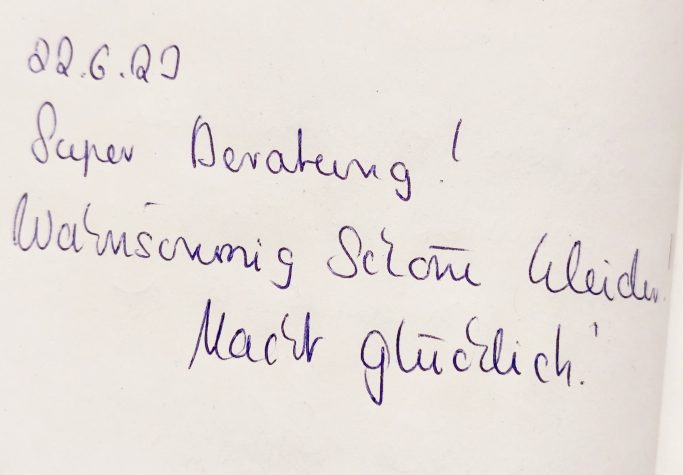 22.6.23
Super Beratung!
Wahnsinnig Schöne Kleider.
Macht glücklich!